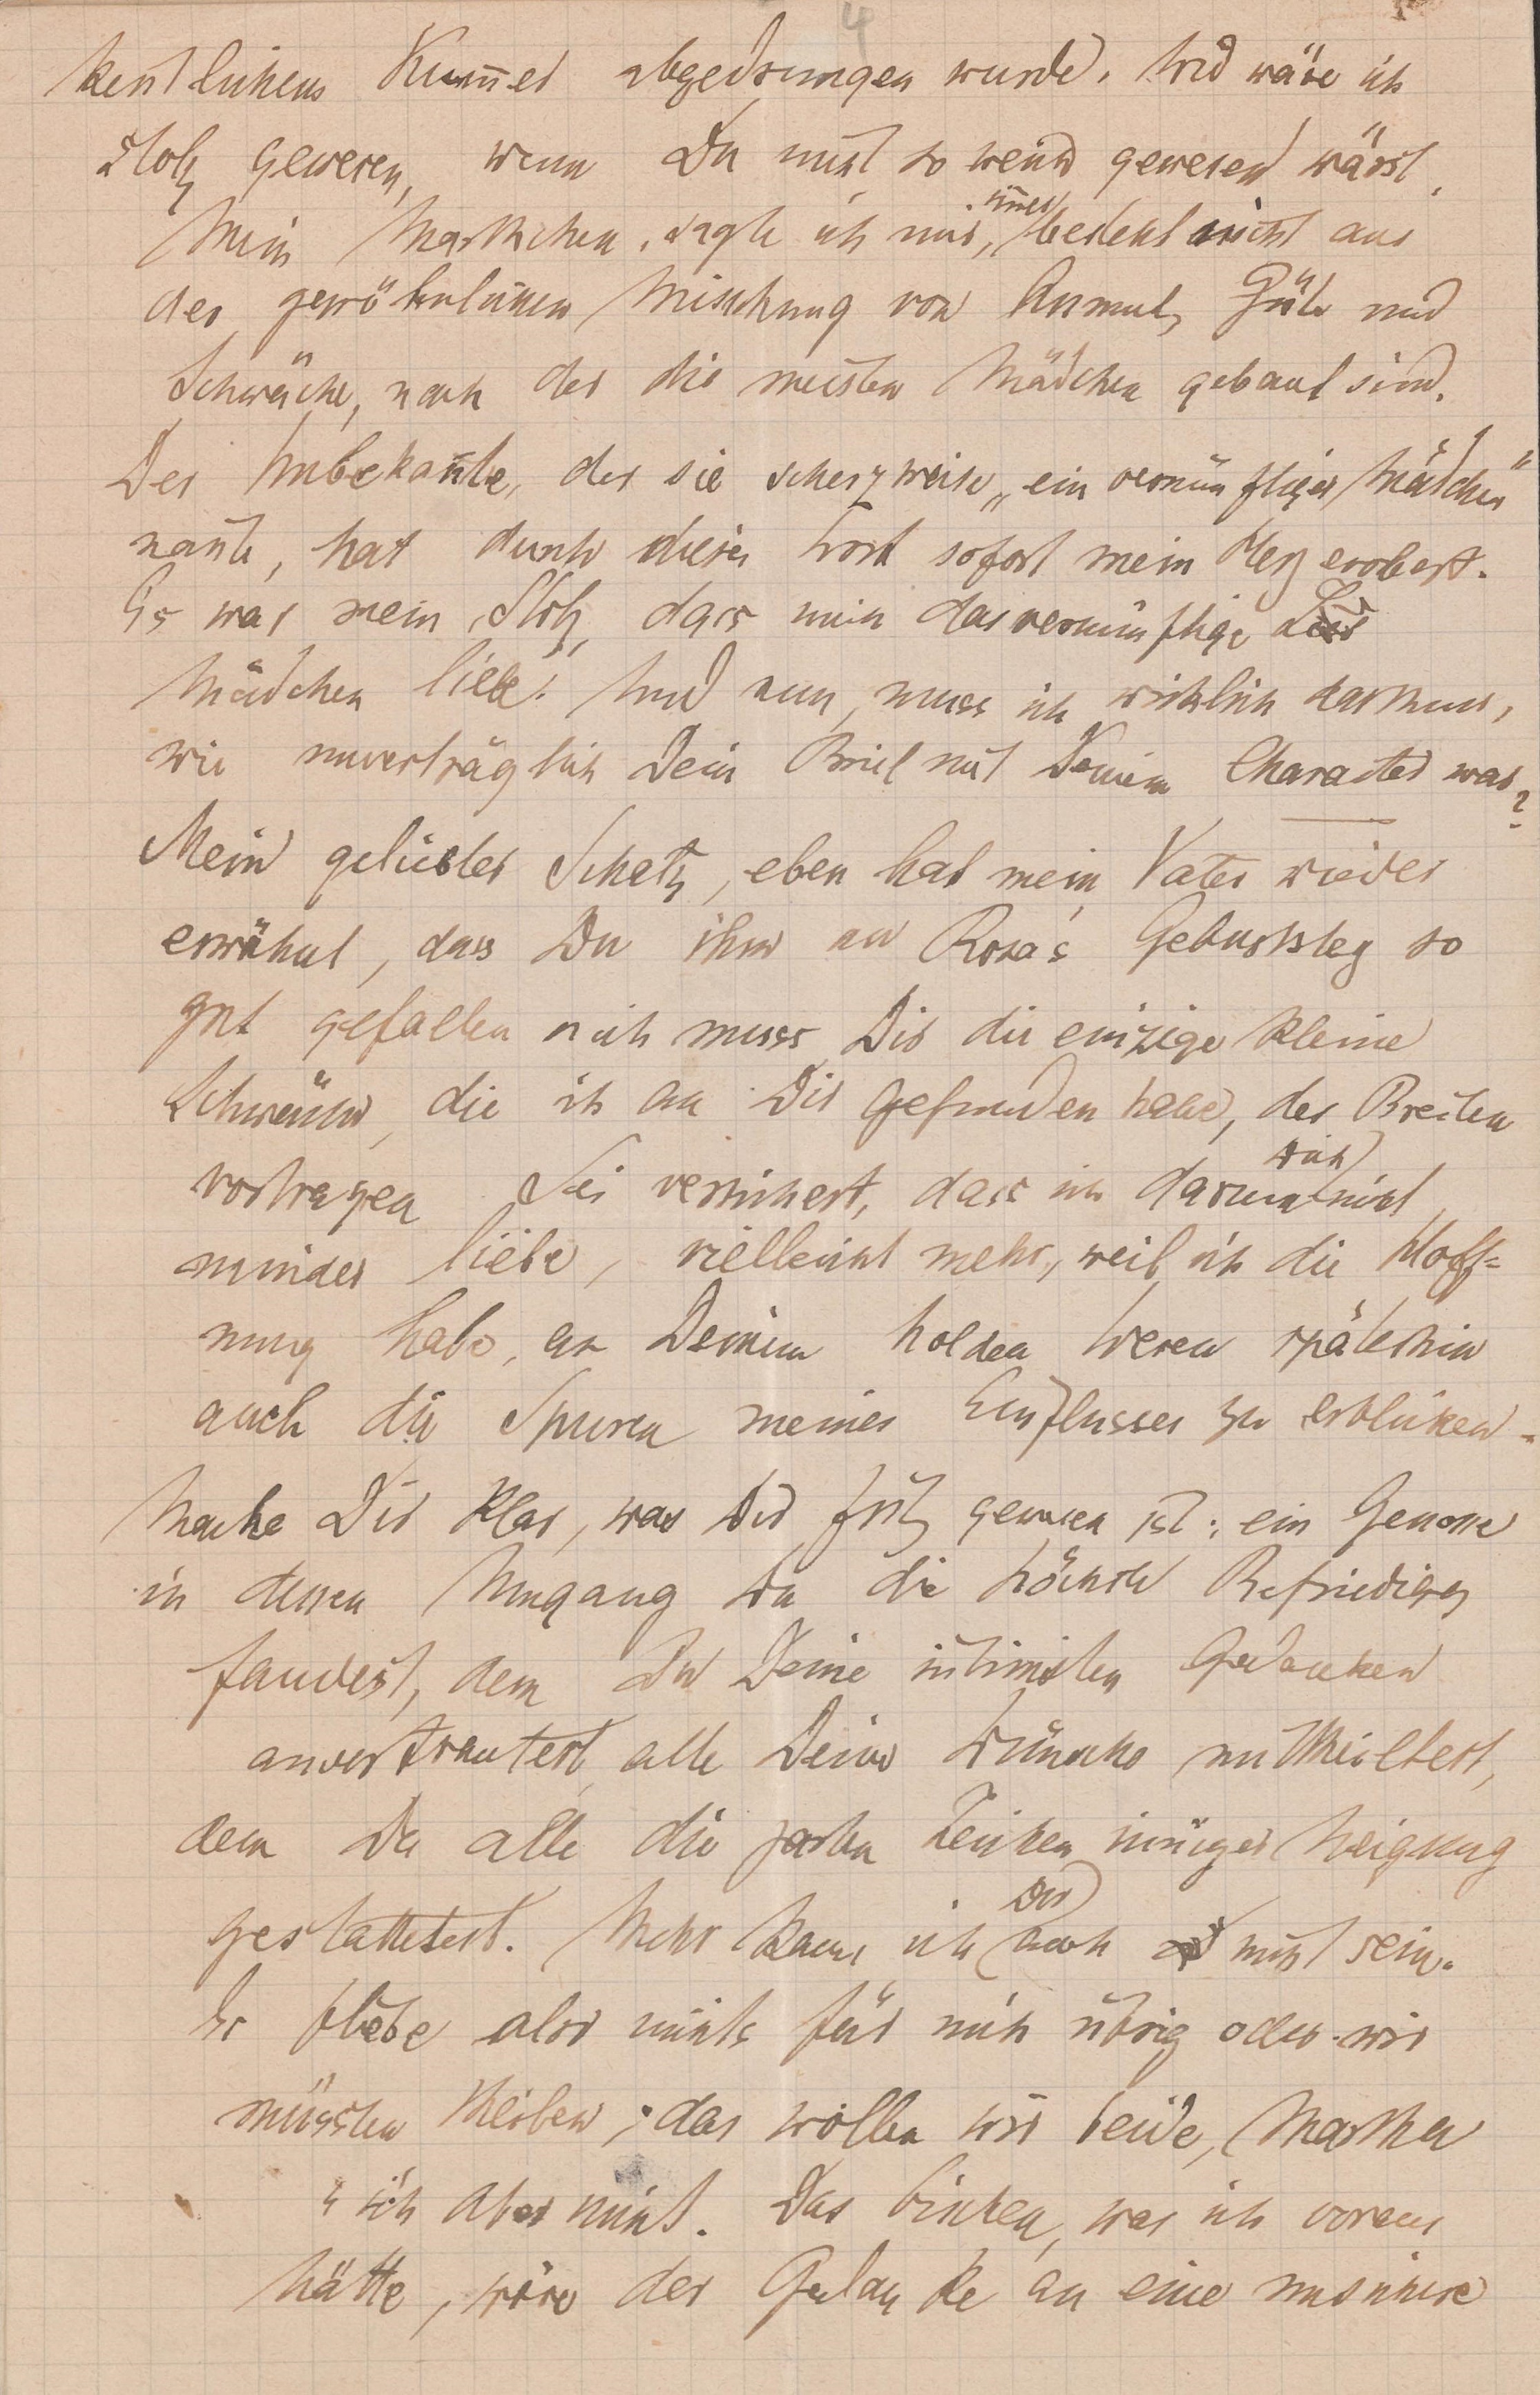 4
kentlichem Kum̄er abgedrungen wurde. Wie wäre ich
stolz gewesen, wenn Du nicht so weich gewesen wärst.
Mein Marthchen, sagte ich mir, im̄er besteht nicht aus
der gewöhnlichen Mischung von Anmut, Güte und
Schwäche, nach der die meisten Mädchen gebaut sind.
Der Unbekan̄te, der sie scherzweise „ein vernünftiges Mädchen“
nan̄te, hat durch dieses Wort sofort mein Herz erobert.
Es war mein Stolz, dass mich das vernünftige
Mädchen liebe. Und nun, muss ich wirklich darthun,
wie unverträglich Dein Brief mit Deinem Character war?
Mein geliebter Schatz, eben hat mein Vater wieder
erwähnt, dass Du ihm an Rosa's Geburtstag so
gut gefallen u ich muss Dir die einzige kleine
Schwäche, die ich an Dir gefunden habe, des Breiten
vortragen Sei versichert, dass ich darum Dich nicht
minder liebe, vielleicht mehr, weil ich die Hoff-
nung habe, an Deinem holden Wesen späterhin
auch die Spuren meines Einflusses zu erblicken.
Mache Dir klar, was Dir Fritz gewesen ist: ein Genosse
in dessen Umgang Du die höchste Befriedigg
fandest, dem Du Deine intimsten Gedanken
anvertrautest, alle Deine Wünsche mittheiltest,
dem Du alle die zarten Zeichen inniger Neigung
gestattetest. Mehr kann ich Dir auch nicht sein.
Es bliebe also nichts für mich übrig oder wir
müssten theilen; das wollen wir beide, Martha
u ich aber nicht. Das bischen, was ich voraus
hätte, wäre der Gedanke an eine unsichere